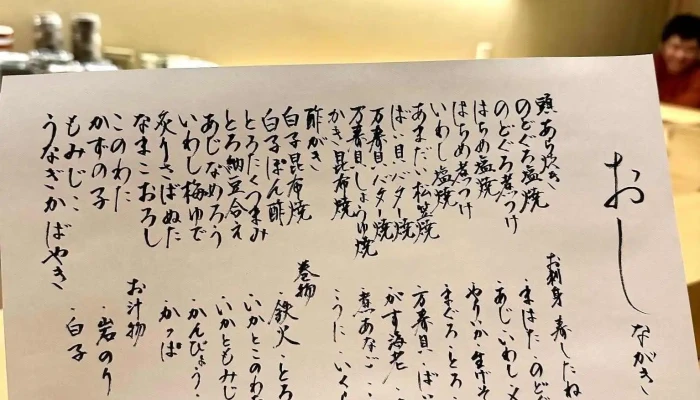 おしながき
頭あら炊き
のどぐろ塩焼
のどぐろ煮つけ
はちめ塩焼
はちめ煮つけ
いわし塩焼
あまだい松笠焼
ばい貝バター焼
万寿貝バター焼
万寿貝しょうゆ焼
かき昆布焼
酢がき
白子昆布焼
白子ぽん酢
とろたくつまみ
とろ納豆合え
あじなめろう
いわし梅ゆで
炙りさばぬた
なまこおろし
このわた
かずの子
もみじこ
うなぎかばやき
お刺身 春したね
・まはた・のどぐ
・あじ・いわし・〆
やりいか・生げそ
・まぐろ・とろ・
・万寿貝・ばい
・がす海老・
・煮あなご・
・うに・いく
巻物
・鉄火・とろ
・いかとこのわた
・いかともみじ
・かんぴょう・
・かっぱ
お汁物
・岩のり
・白子